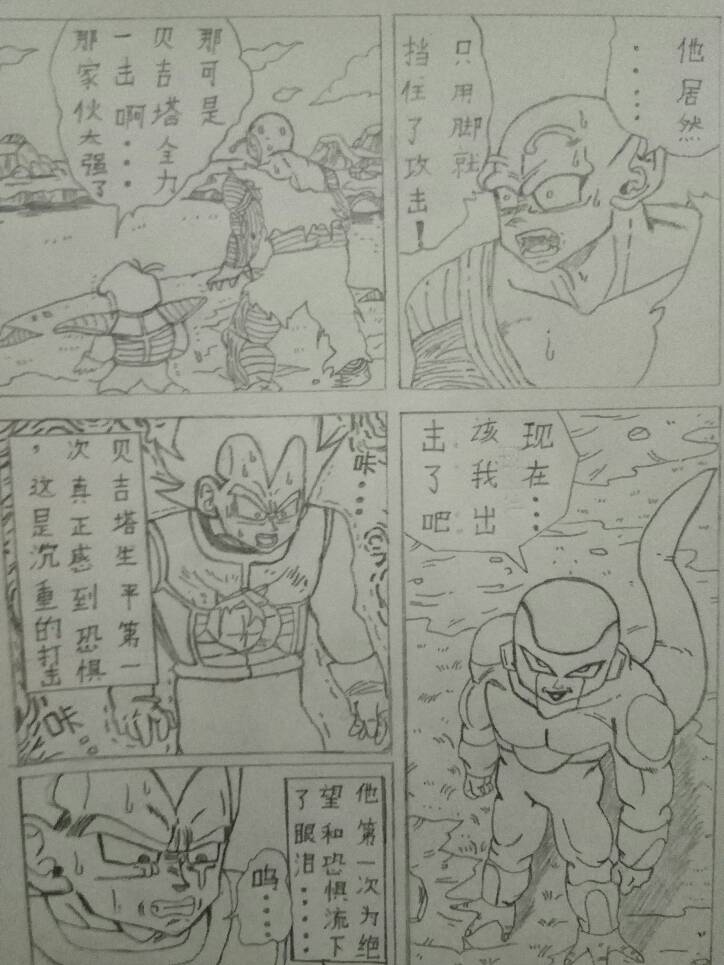 他居然
……
只用脚就
挡住了攻击！
那可是
贝吉塔全力
一击啊……
那家伙太强了
现在…
该我出
击了吧
咔……
贝吉塔生平第一
次真正感到恐惧
，这是沉重的打击
咔…
他第一次为绝
望和恐惧流下
了眼泪……
呜……